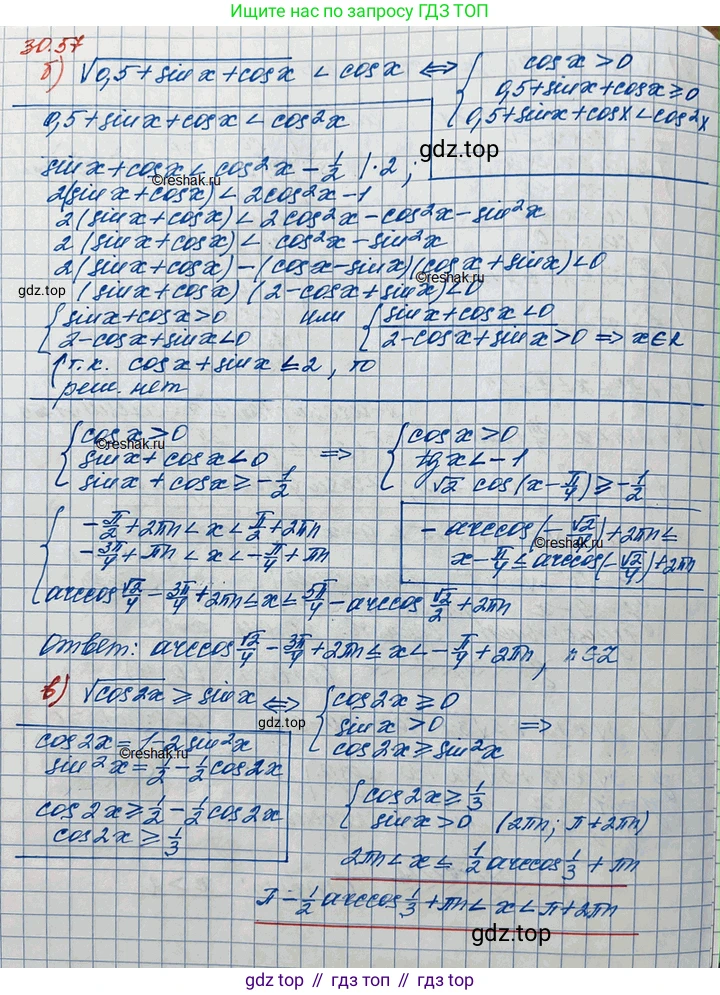 Ищите нас по запросу ГДЗ ТОП
30.57
б) √(0,5+sinx+cosx) < cosx ⇔ { cosx>0
0,5+sinx+cosx≥0
0,5+sinx+cosx<cos²x
0,5+sinx+cosx<cos²x
gdz.top
sinx+cosx<cos²x-1/2 |·2;
©reshak.ru
2(sinx+cosx)<2cos²x-1
2(sinx+cosx)<2cos²x-cos²x-sin²x
2(sinx+cosx)<cos²x-sin²x
2(sinx+cosx)-(cosx-sinx)(cosx+sinx)<0
©reshak.ru
gdz.top
(sinx+cosx)(2-cosx+sinx)<0
{ sinx+cosx>0 или { sinx+cosx<0
2-cosx+sinx<0 2-cosx+sinx>0 ⇒ x∈R
т.к. cosx+sinx≤2, то
реш. нет
{ cosx>0 { cosx>0
©reshak.ru
sinx+cosx<0 ⇒ tgx<-1
sinx+cosx≥-1/2 √2 cos(x-π/4)≥-1/2
{ -π/2+2πn<x<π/2+2πn
-arccos(-√2/4)+2πn≤
©reshak.ru
-3π/4+πn<x<-π/4+πn
x-π/4≤arccos(-√2/4)+2πn
arccos√2/4-3π/4+2πn≤x≤5π/4-arccos√2/2+2πn
Ответ: arccos√2/4-3π/4+2πn≤x<-π/4+2πn, n∈Z
в) √cos2x ≥ sinx ⇔ { cos2x≥0
gdz.top
sinx>0 ⇒
cos2x≥sin²x
cos2x=1-2sin²x
©reshak.ru
sin²x=1/2-1/2cos2x
cos2x≥1/2-1/2cos2x
cos2x≥1/3
{ cos2x≥1/3
sinx>0 (2πn; π+2πn)
2πn<x≤1/2arccos1/3+πn
π-1/2arccos1/3+πn<x<π+2πn
gdz.top
gdz.top // гдз топ // gdz.top